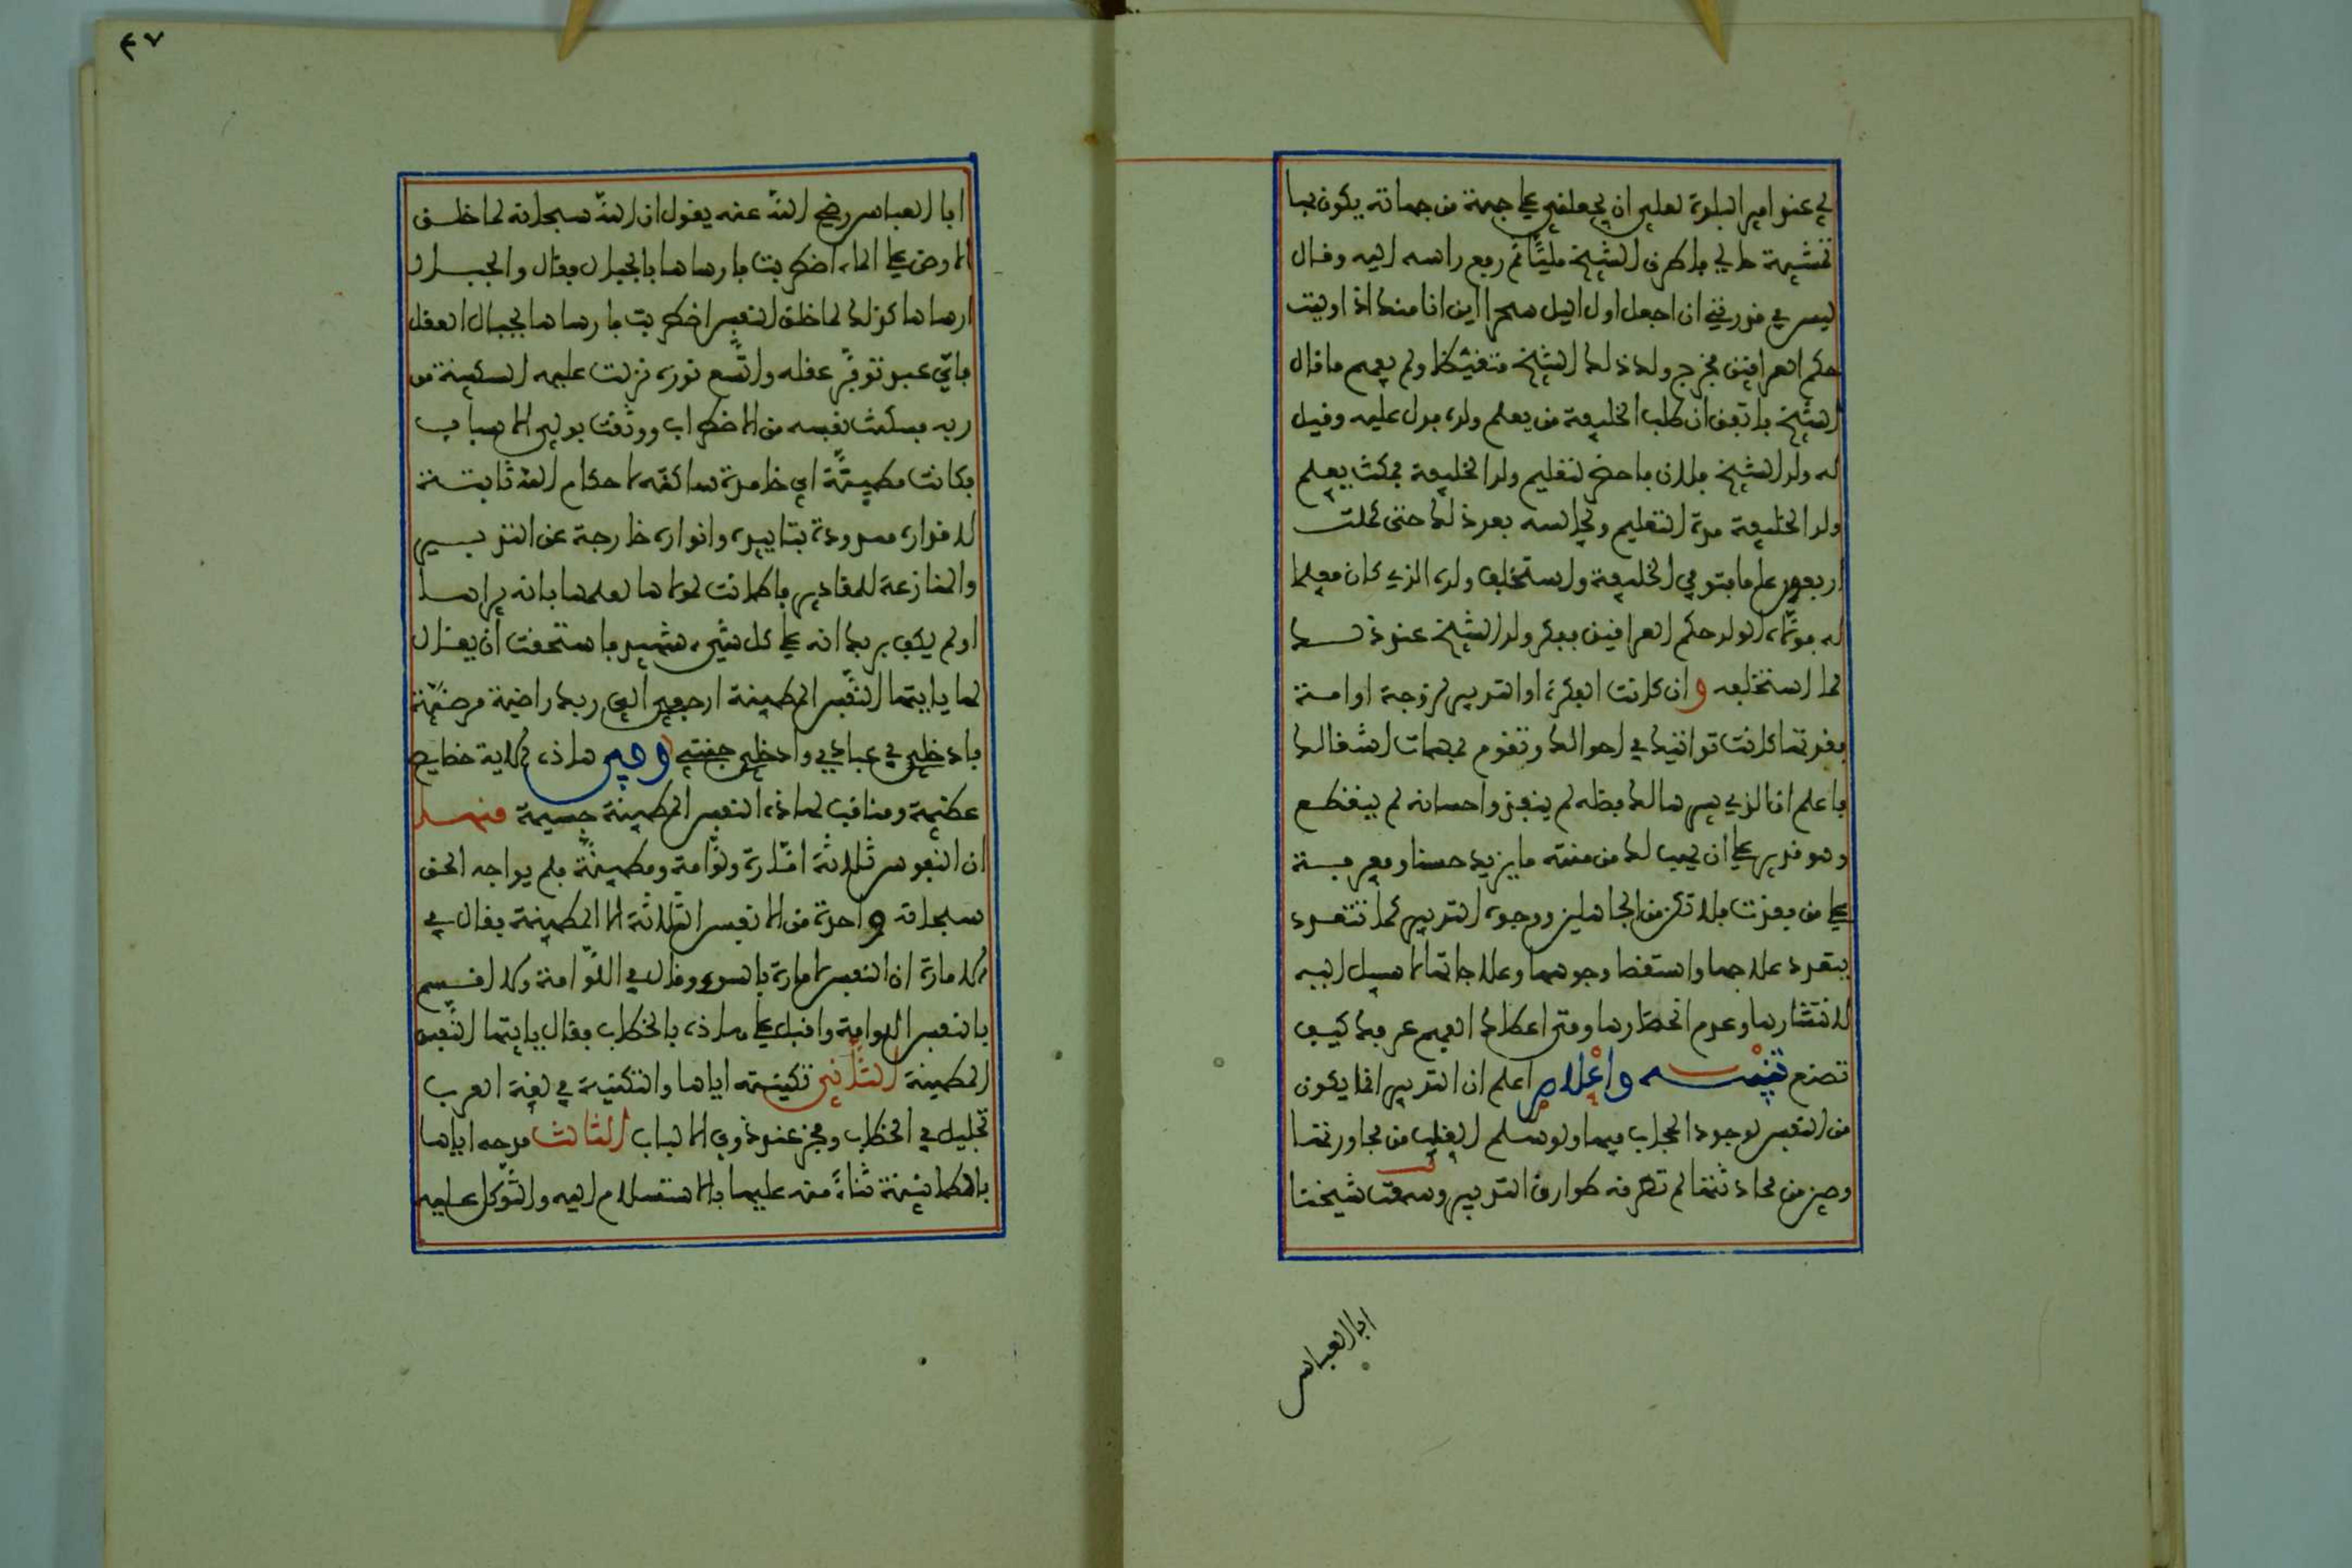 لي عند امير البلدة لعلي ان يجعلني على جهة من جهاته يكون بها
تمشية حالي فاطرق الشيخ مليًّا ثم رفع راسه اليه وقال
ليس في قدرتي ان اجعل اول اليل سحرا اين انا منك اذا وليت
حكم العراقين فخرج ولد ذلك الشيخ متغيظا ولم يفهم ما قال
الشيخ فاتفق ان طلب الخليفة من يعلم ولده فدل عليه وقيل
له ولد الشيخ فلان فاحضر لتعليم ولد الخليفة فمكث يعلم
ولد الخليفة مدة التعليم ويجالسه بعد ذلك حتى كملت
اربعون عاما فتوفي الخليفة واستخلف ولده الذي كان معلما
له فولاه الولد حكم العراقين ففكر ولد الشيخ عند ذلك
لما استخلفه وان كانت الفكرة او التدبير لزوجة او امة
فقدتها كانت تواتيك في احوالك وتقوم بمهمات اشغالك
فاعلم ان الذي يسرها لك فضله لم ينفد واحسانه لم ينقطع
وهو قدير على ان يهب لك من منته ما يزيد حسنا ومعرفة
على من فقدت فلا تكن من الجاهلين ووجوه التدبير لما تتعدد
بتعدد علاجها واستقصا وجوهها وعلاجاتها لا سبيل اليه
لانتشارها وعدم انحصارها ومتى اعطاك الفهم عرفك كيف
تصنع تنبيـــه واعلام اعلم ان التدبير انما يكون
من النفس لوجود الحجاب فيها ولو سلم القلب من مجاورتها
وصين من محادثتها لم تطرقه طوارق التدبير وسمعت شيخنا
ابا العباس
٤٧
ابا العباس رضي الله عنه يقول ان الله سبحانه لما خلق
الارض على الماء اضطربت فارساها بالجبال فقال والجبال
ارساها كذلك لما خلق النفس اضطربت فارساها بجبال العقل
فاي عبد توفّر عقله واتسع نوره نزلت عليه السكينة من
ربه فسكنت نفسه من الاضطراب ووثقت بولي الاسباب
فكانت مطمينّة اي خامدة ساكنة لاحكام الله ثابتة
لاقداره ممدودة بتاييده وانواره خارجة عن التدبير
والمنازعة للمقادير فاطمانت لمولاها لعلمها بانه يراها
اولم يكف بربك انه على كل شيء شهيد فاستحقت ان يقال
لها يا ايتها النفس المطمينة ارجعي الى ربك راضية مرضية
فادخلي في عبادي وادخلي جنتي وفي هاذه الاية خصايص
عظيمة ومناقب لهاذه النفس المطمينة جسيمة منهــا
ان النفوس ثلاثة امّارة ولوّامة ومطمينّة فلم يواجه الحق
سبحانه واحدة من الانفس الثلاثة الا المطمينة فقال في
الامارة ان النفس لامارة بالسوء وقال في اللوّامة ولا اقسم
بالنفس اللوامة واقبل على هاذه بالخطاب فقال يا ايتها النفس
المطمينة الثاني تكنيته اياها والتكنية في لغة العرب
تجليل في الخطاب وفخر عند ذوي الالباب الثالث مدحه اياها
بالطمانينة ثناءً منه عليها بالاستسلام اليه والتوكل عليه